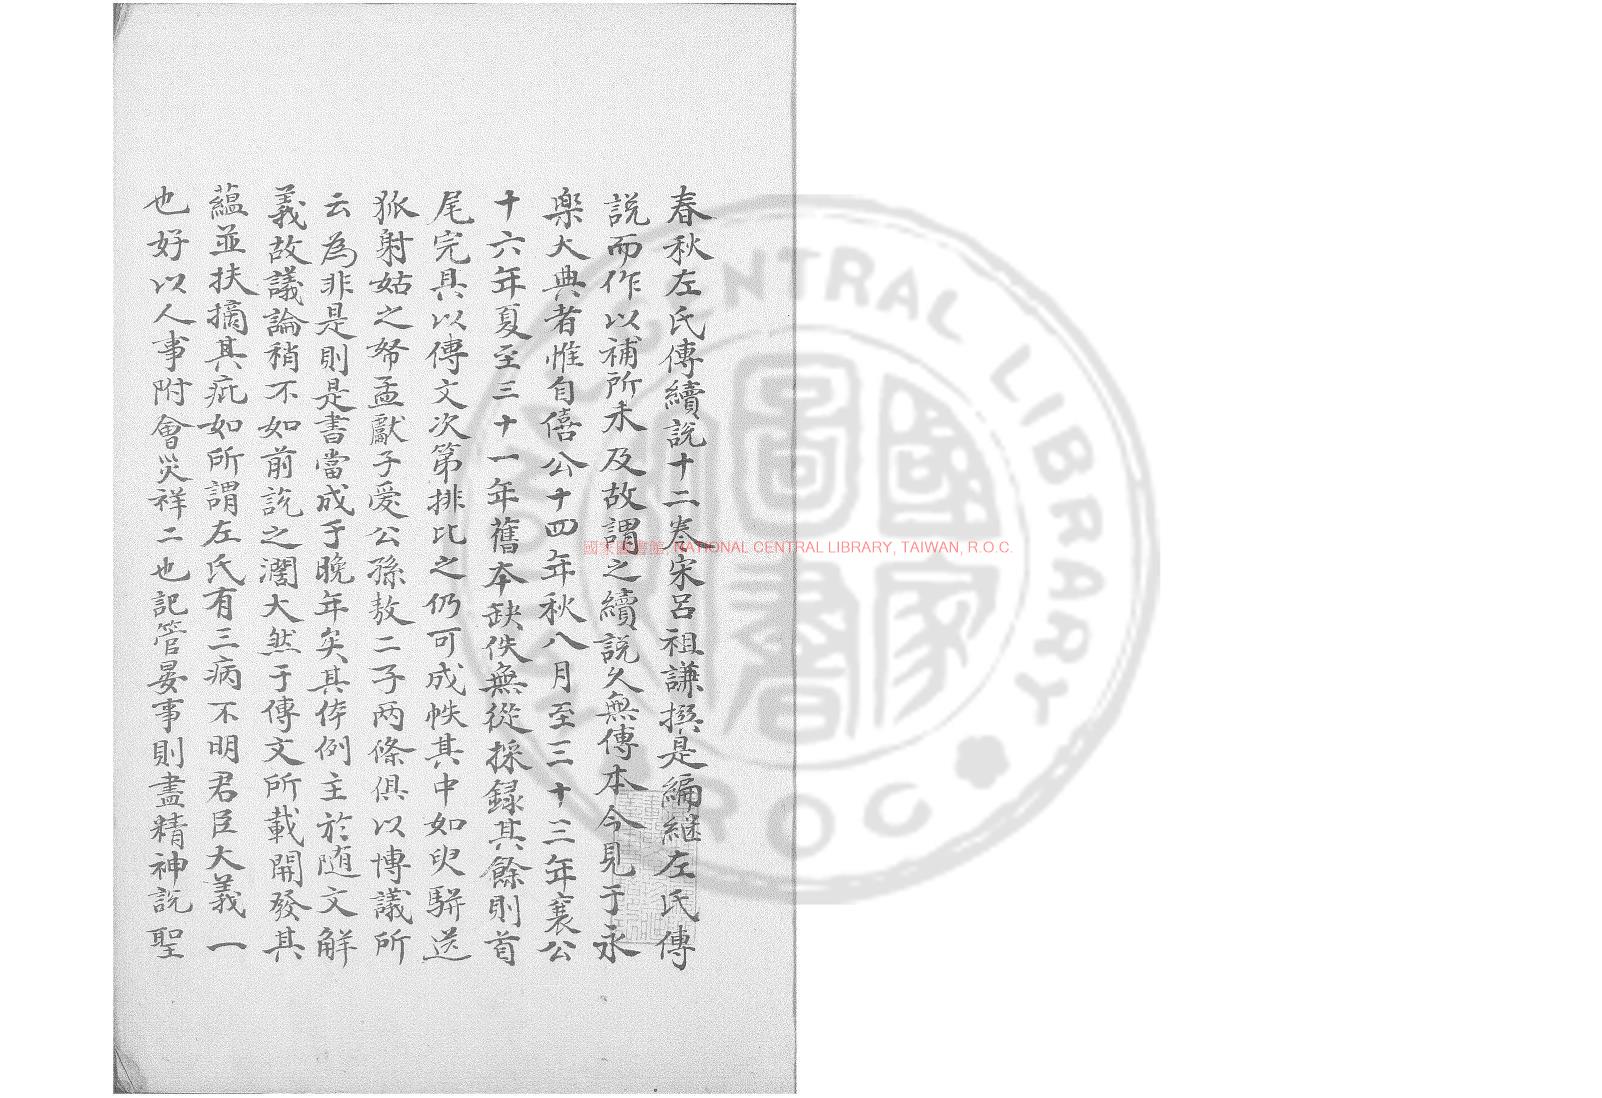 春秋左氏傳續說十二卷宋呂祖謙撰是編繼左氏傳
說而作以補所未及故謂之續說久無傳本今見于永
樂大典者惟自僖公十四年秋八月至三十三年襄公
十六年夏至三十一年舊本缺佚無從採録其餘則首
尾完具以傳文次第排比之仍可成帙其中如臾駢送
狐射姑之帑孟獻子愛公孫敖二子兩條俱以博議所
云為非是則是書當成于晚年矣其体例主於随文解
義故議論稍不如前說之濶大然于傳文所載開發其
蘊並扶摘其疵如所謂左氏有三病不明君臣大義一
也好以人事附會災祥二也記管晏事則盡精神說聖
國家圖書館, NATIONAL CENTRAL LIBRARY, TAIWAN, R.O.C.
國家圖書
NATIONAL CENTRAL LIBRARY
TAIWAN R.O.C.